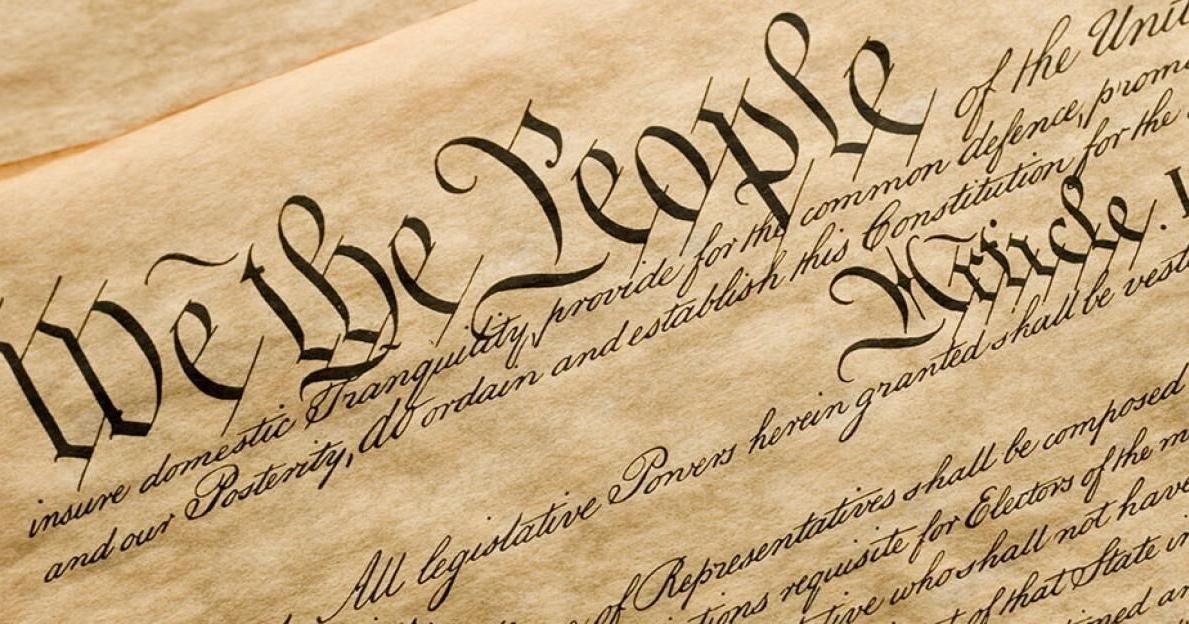 We the People of the Unit
insure domestic Tranquility, provide for the common defence, prom
and our Posterity, do ordain and establish this Constitution for the
Article. I
All legislative Powers herein granted shall be vest
of Representatives shall be composed
tions requisite for Electors of the m
tive who shall not have
t of that State in